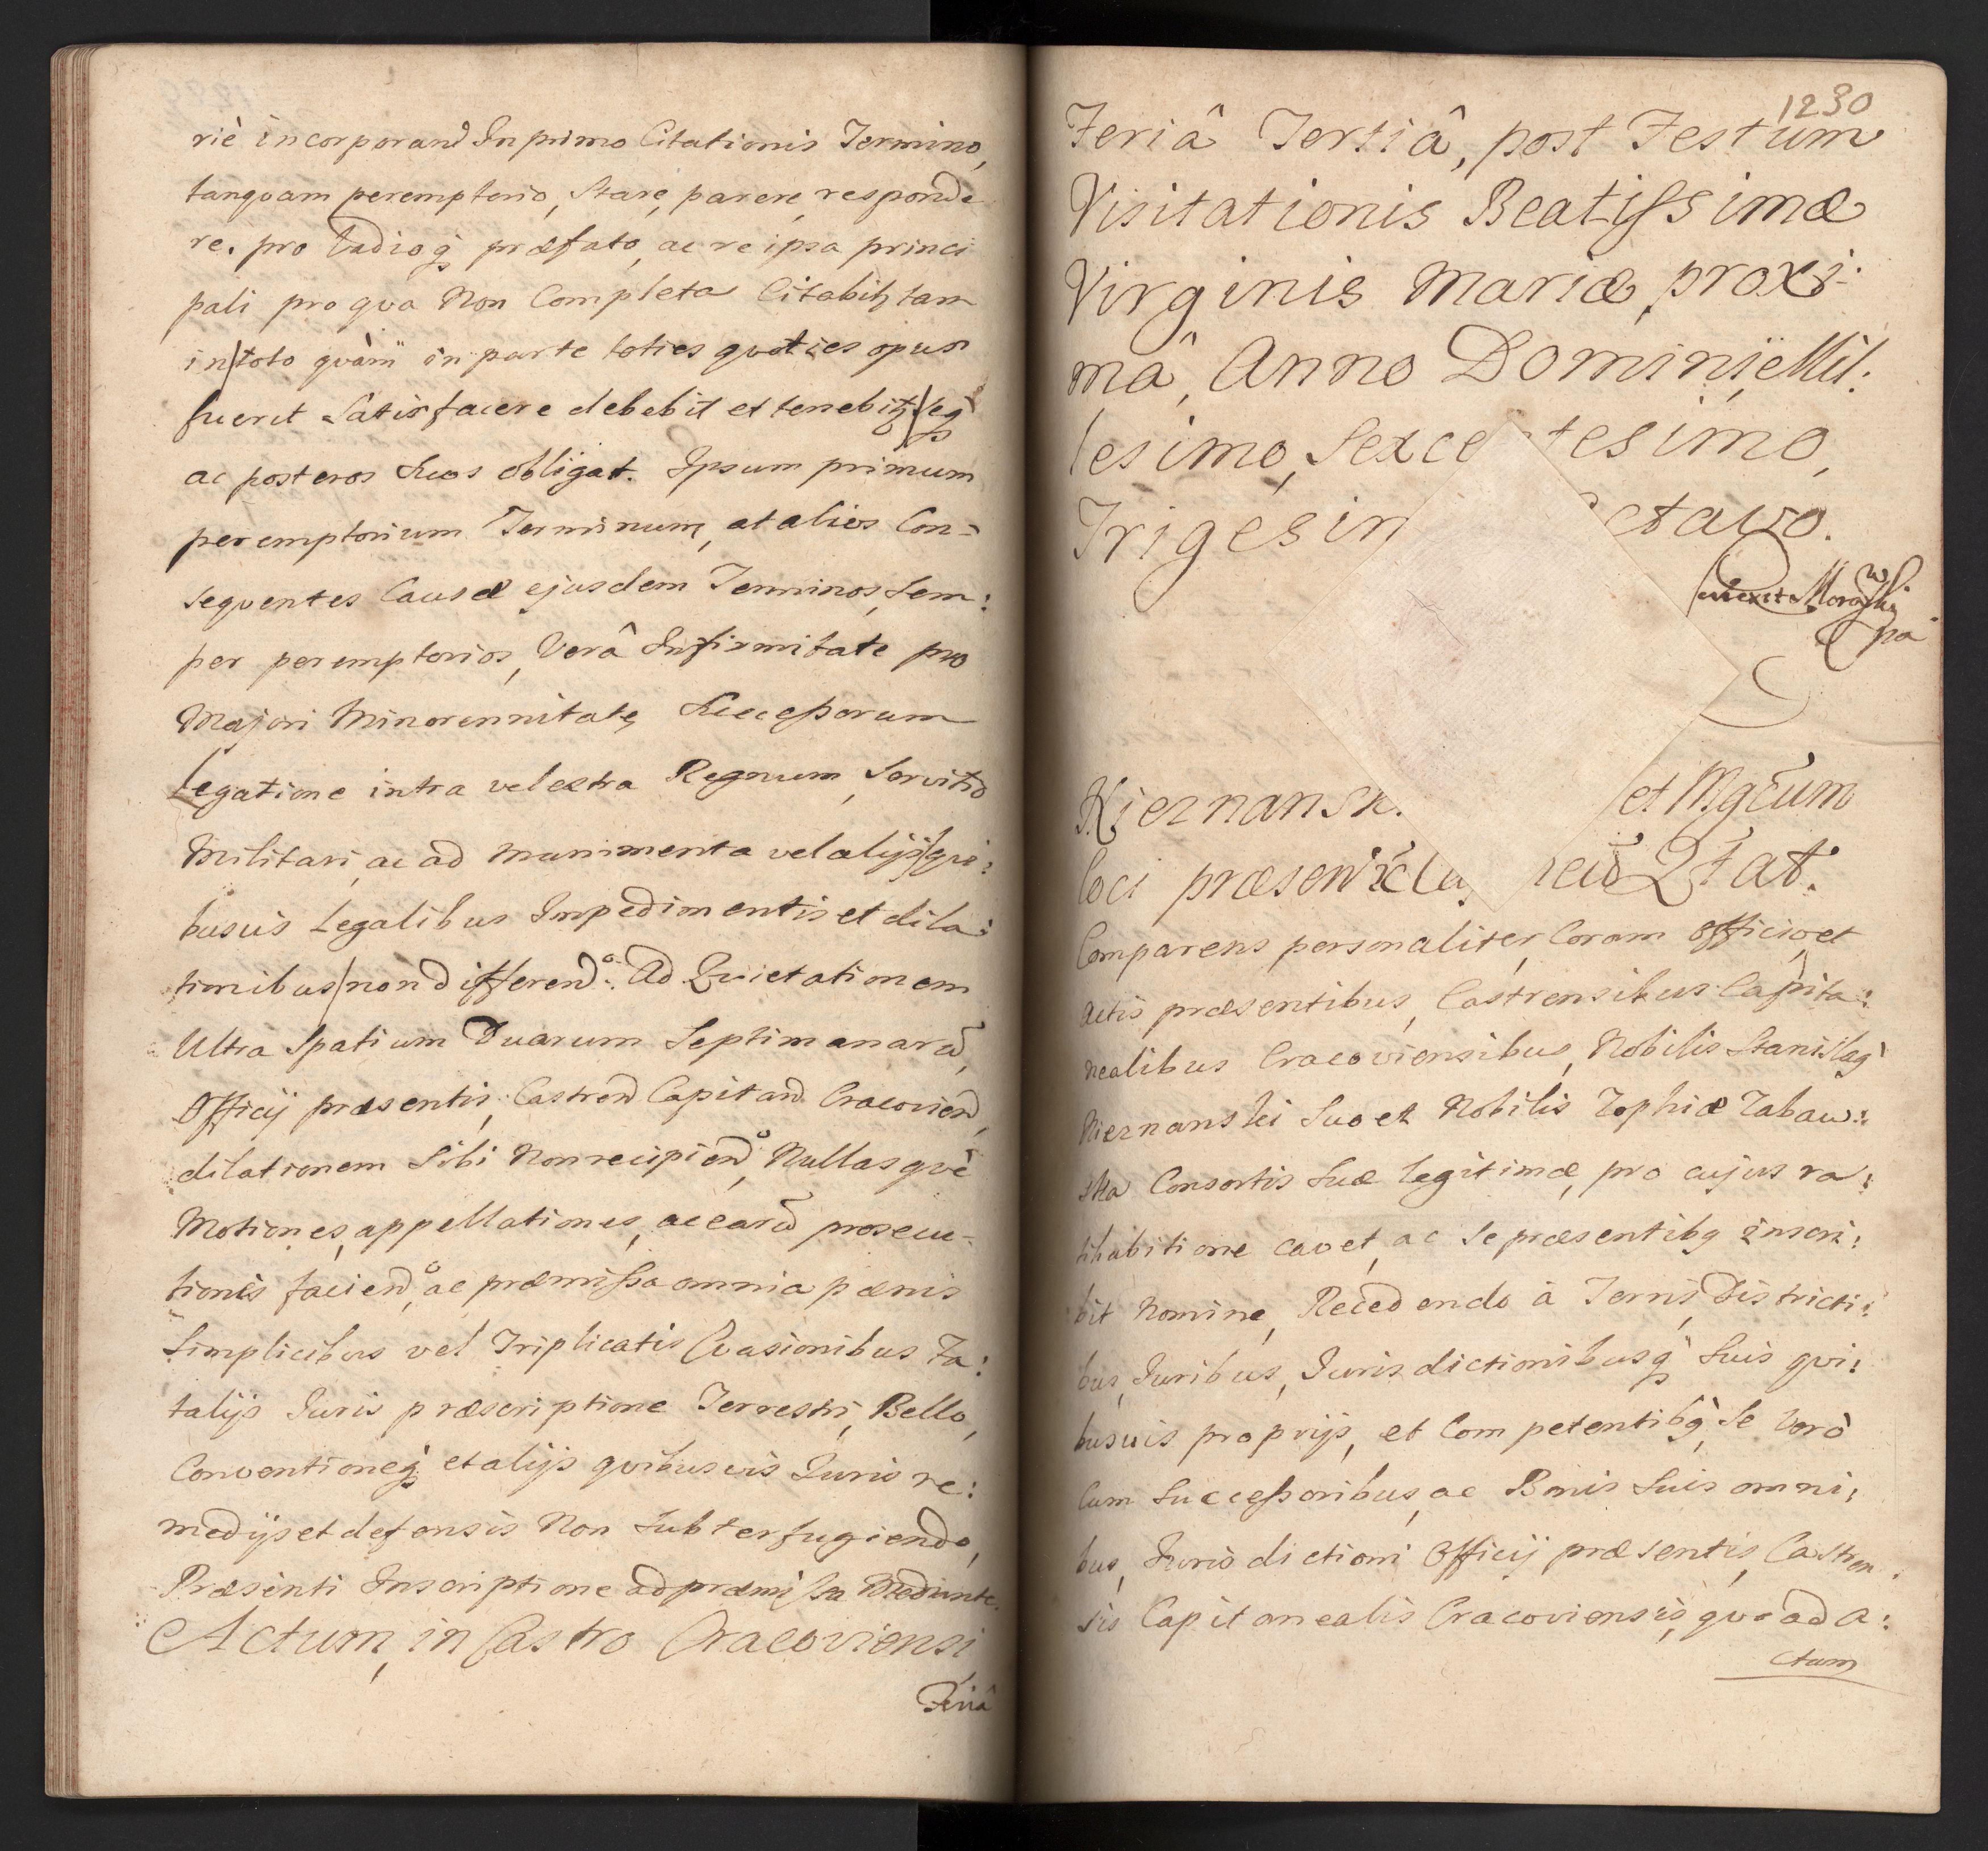 riè incorporand In primo Citationis Termino,
tanquam peremptorio, Stare, parere, responde
re. pro Vadioq præfato, ac re ipsa princi
pali pro qva Non Completa Citabitz tam
in toto qvàm in parte toties qvoties opus
fuerit Satisfacere debebit et tenebitz seq
ac posteros Suos obligat. Ipsum primum
peremptorium Terminum, at alios Con-
seqventes Causæ ejusdem Terminos, Sem:
per peremptorios, Verâ Infirmitate pro
Majori Minorennitate, Successorum
Legatione intra vel extra Regnum, Servitio
Militari, ac ad Munimenta vel alijs qvi:
busvis Legalibus Impedimentis et dila:
tionibus non differendo: Ad Qvietationem
Ultra Spatium Duarum Septimanarū,
Officij præsentis, Castren Capitan Cracovien,
dilationem Sibi Non recipiendo, Nullasqvè
Motiones, appellationes, ac earū prosecu-
tiones faciendo, ac præmissa omnia pœnis
Simplicibus vel Triplicatis Evasionibus Fa:
talijs Juris præscriptione Terrestri, Bello,
Conventioneq et alijs qvibusvis Juris re:
medijs et defensis Non Subterfugiendo,
Præsenti Inscriptione ad præmissa Mediante.
Actum, in Castro Cracoviensi
Feriâ
1230
Feriâ Tertiâ, post Festum
Visitationis Beatissimæ
Virginis Mariæ, proxi-
mâ, Anno Domini, Mil:
lesimo, Sexce tesimo,
Trigesim ctavo.
Kiernansk. et Mgrum
loci præsen Qtat.
Comparens personaliter, Coram Officio, et
Actis præsentibus, Castrensibus Capita:
nealibus Cracoviensibus, Nobilis Stanislaq
Kiernanski Suo et Nobilis Zophiæ Zabaw:
ska Consortis Suæ legitimæ, pro cujus ra:
tihabitione cavet, ac Se præsentibq inscri:
bit Nomine, Recedendo à Terris, Districti:
bus, Juribus, Jurisdictionibusq Suis qvi:
busvis proprijs, et Competentibq, Se Verò
Cum Successoribus, ac Bonis Suis omni:
bus, Jurisdictioni Officij præsentis, Castren
sis Capitanealis Cracoviensis, qvo ad a:
ctum